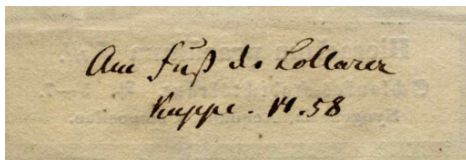 Am Fuß d. Lollarer
Kuppe. VI.58